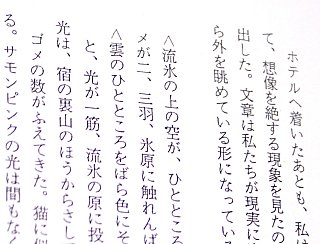 ホテルへ着いたあとも、私は
て、想像を絶する現象を見たの
出した。文章は私たちが現実に
ら外を眺めている形になってい
〈流氷の上の空が、ひとところ
メが二、三羽、氷原に触れんば
〈雲のひとところをばら色にそ
と、光が一筋、流氷の原に投
光は、宿の裏山のほうからさし
ゴメの数がふえてきた。猫に似
る。サモンピンクの光は間もなく